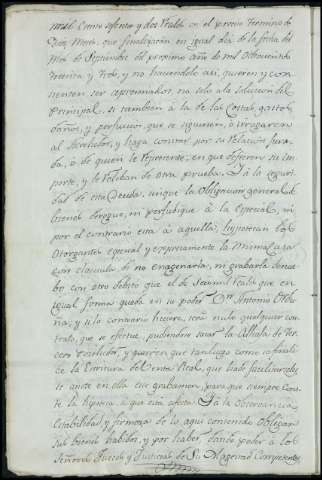 mil ciento setenta y dos Reales en el preciso termino de
Diez meses, que finalizarán en igual dia de la fecha del
Mes de Septiembre del proximo año de mil ochocientos
treinta y tres, y no haciendolo asi, quieren y con
sienten ser apremiados, no solo a la solucion del
Principal, si tambien á la de las Costas, gastos,
daños, y perjuicios, que se siguieren, é irrogaren
al Acreedor, y haga constar por su Relacion jura
da, ó de quien le represente, en que difieren su im
porte, y le relevan de otra prueba. Y á la seguri
dad de esta Deuda, sin que la Obligacion general de
bienes derogue, ni perjudique á la especial, ni
por el contrario esta á aquella; hipotecan los
Otorgantes especial y expresamente la misma casa
con clausula de no enagenarla, ni grabarla
con otro debito que el de Reales que en
igual forma queda en su poder Dn. Antonio
y si lo contrario hiciere, será nulo qualquier con
trato, que se efectue, pudiendose sacar la Alhaja de Ter
cero Poseedor, y quieren que tan luego como se
ce la Escritura de Venta Real, que
se anote en ella este grabamen, para que siempre cons
te la hipoteca, á que está afecta. Y á la Observancia,
estabilidad y firmeza de lo aqui contenido obligan
sus bienes habidos, y por haber, dando poder á los
Señores Jueces y Justicias de Su Magestad Competentes